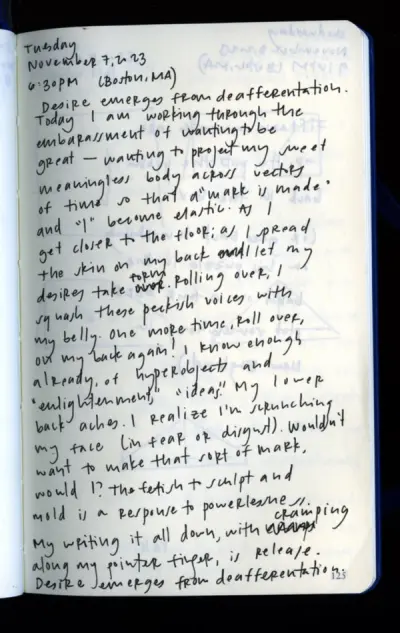 Tuesday
November 7, 2023
6:30PM (Boston, MA)
Desire emerges from deafferentation.
Today I am working through the
embarassment of wanting to be
great — wanting to project my meet
meaningless body across vectors
of time so that a "mark is made"
and "I" become elastic. As I
get closer to the floor; as I spread
the skin on my back and let my
desires take form. Rolling over, I
squash these peckish voices with
my belly. One more time, roll over,
on my back again! I know enough
already, of hyperobjects and
"enlightenment," "ideas." My lower
back aches. I realize I'm scrunching
my face (in fear or disgust). Wouldn't
want to make that sort of mark,
would I? The fetish to sculpt and
mold is a response to powerlessness.
My writing it all down, with cramping
along my pointer finger, is release.
Desire emerges from deafferentation.
123